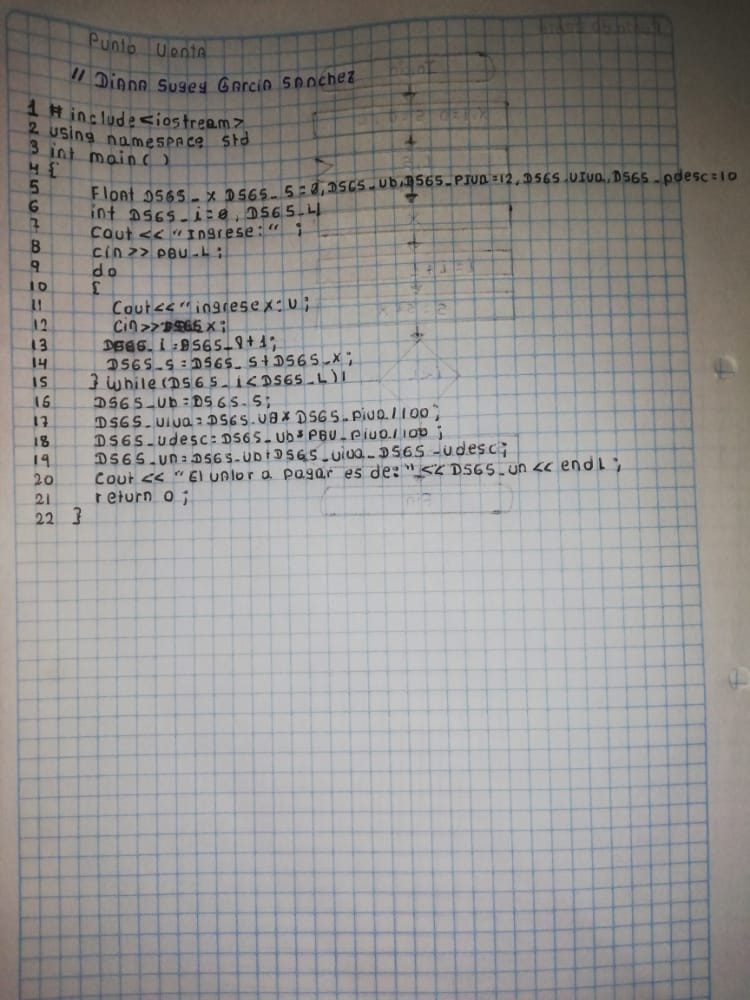 Punto Venta
// Diana Sugey Garcia Sanchez
1 # include <iostream>
2 using namespace std
3 int main( )
4 {
5 Float DSGS_x DSGS_S=0, DSGS_Ub, DSGS_PIva=12, DSGS_UIva, DSGS_pdesc=10
6 int DSGS_i=0, DSGS_L
7 Cout << "Ingrese:" ;
8 cin >> PBU_L;
9 do
10 {
11 Cout<< "ingrese x: U;
12 Cin>> DSGS x;
13 DSGS_i=DSGS_i+1;
14 DSGS_S=DSGS_S+DSGS_x;
15 } while (DSGS_i<DSGS_L)
16 DSGS_Ub=DSGS_S;
17 DSGS_uiva=DSGS_UB*DSGS_piva/100;
18 DSGS_udesc=DSGS_Ub*PBU_piva/100;
19 DSGS_un=DSGS_Ub+DSGS_uiva_DSGS_udesc;
20 Cout << "El valor a pagar es de:" << DSGS_un << endl;
21 return 0;
22 }